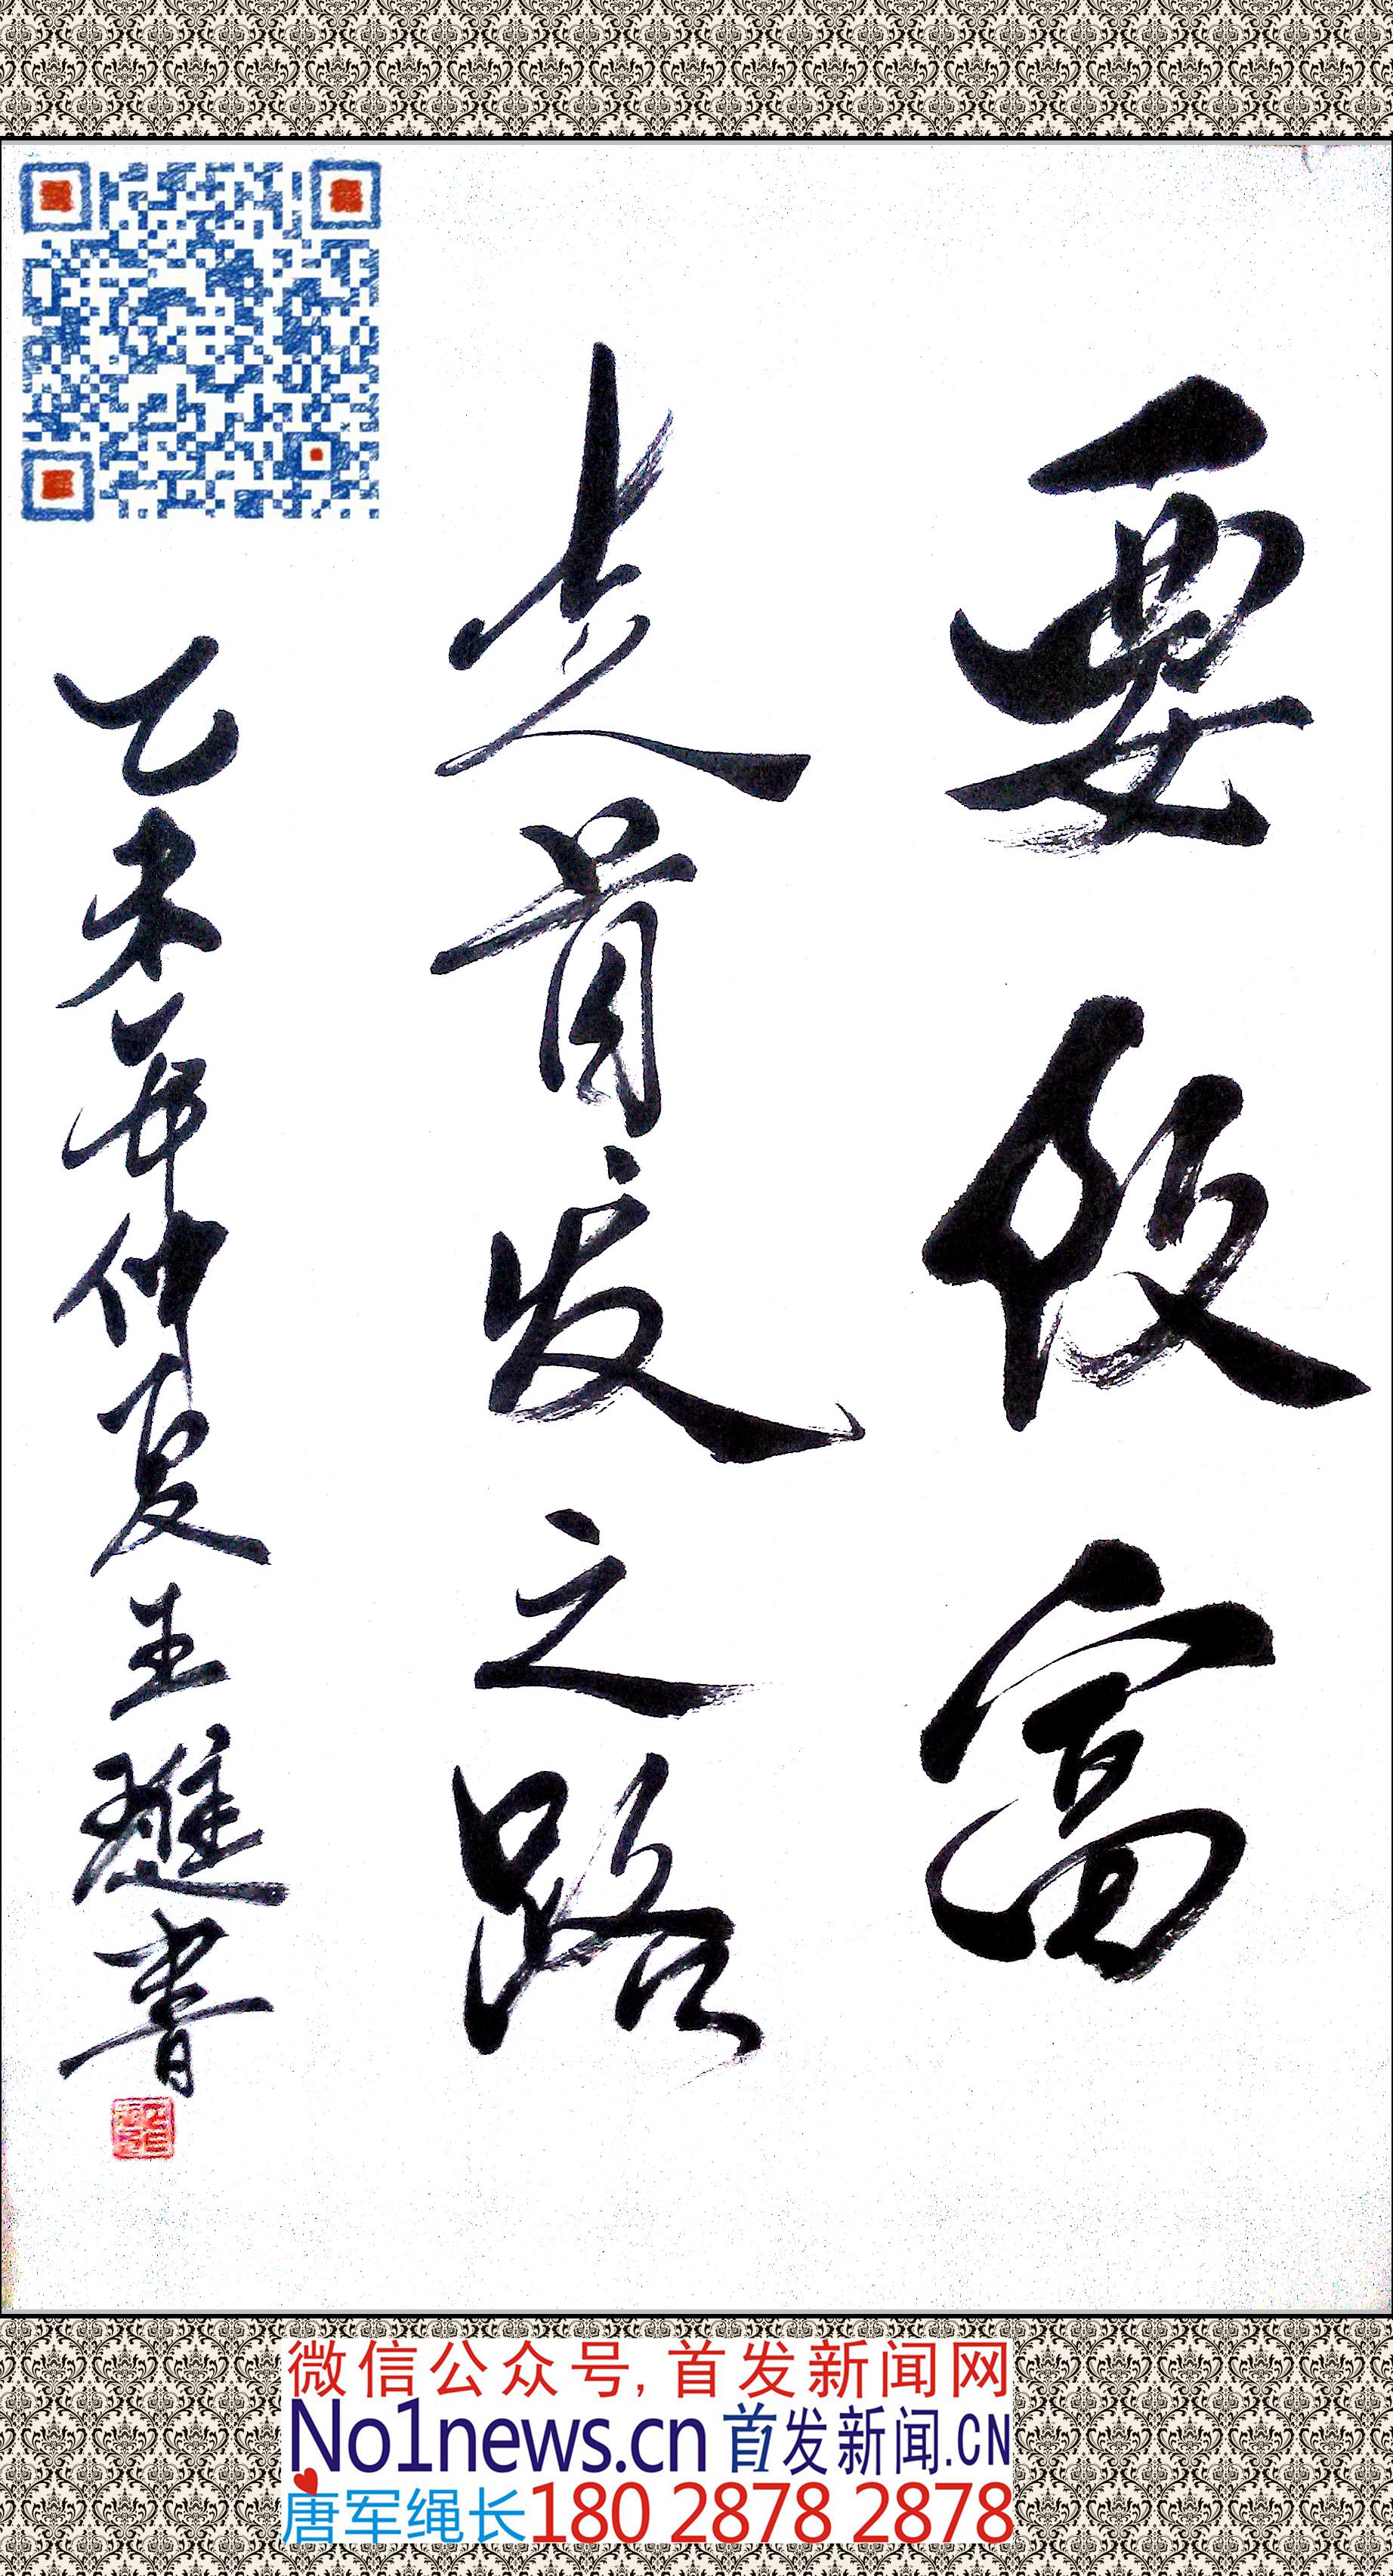 要致富
走首发之路
乙未年仲夏王璡書
微信公众号,首发新闻网
No1news.cn 首发新闻.CN
唐军绳长180 2878 2878